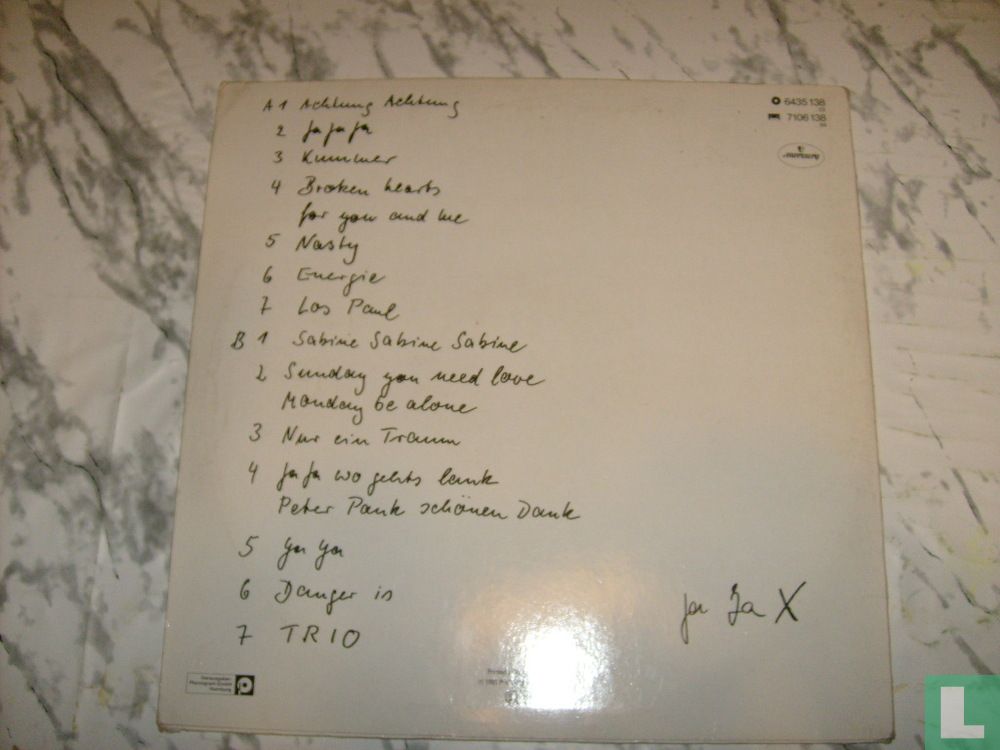 A 1 Achtung Achtung
2 Ja Ja Ja
3 Kummer
4 Broken hearts
for you and me
5 Nasty
6 Energie
7 Los Paul
B 1 Sabine Sabine Sabine
2 Sunday you need love
Monday be alone
3 Nur ein Traum
4 Ja Ja wo gehts lank
Peter Pank schönen Dank
5 Ya Ya
6 Danger is
7 TRIO
6435 138
7106 138
mercury
Ja Ja X
Herausgeber
Phonogram GmbH
Hamburg
L